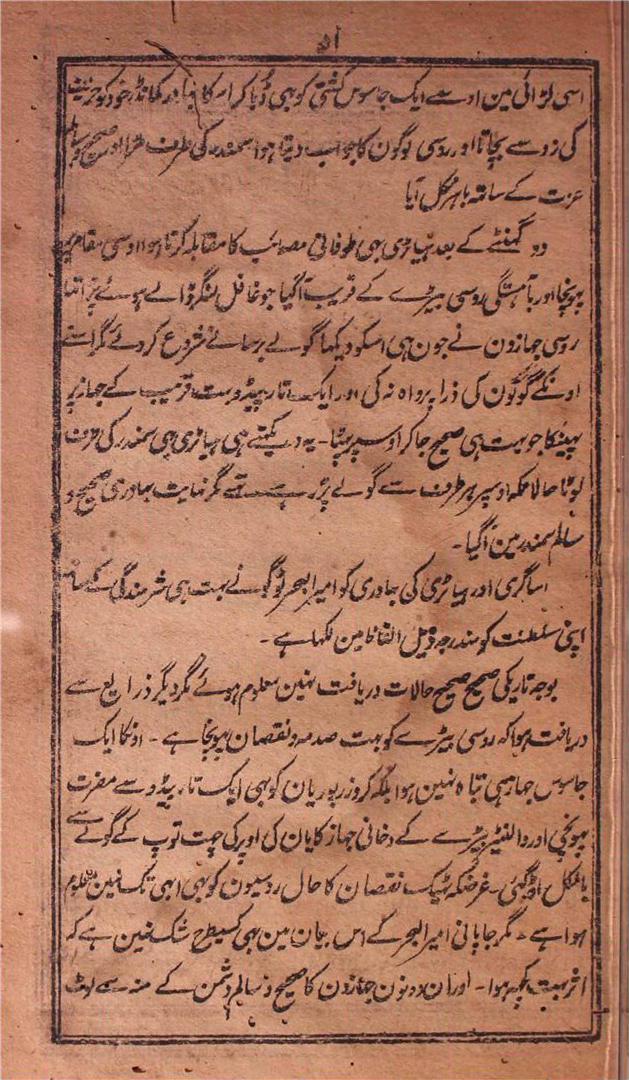 ۵۱
اسی لڑائی مین اوسے ایک جاسوس کشتی کو بھی ڈبا کر اس کا بہادر کمانڈر خود کو حزیمت
کی زد سے بچاتا اور روسی توپون کا جواب دیتا ہوا سمندر کی طرف مڑا اور صحیح و سالم
عزت کے ساتھ باہر نکل آیا
دو گھنٹے کے بعد ہیاٹری بھی طوفانی مصائب کا مقابلہ کرتا ہوا اوسی مقام پر
پہونچا اور بآہستگی روسی بیڑے کے قریب آگیا جو غافل لنگر ڈالے ہوئے پڑا تھا
روسی جہازون نے جون ہی اسکو دیکھا گولے برسانے شروع کردئے مگر اسنے
اونکے گولون کی ذرا پرواہ نہ کی اور ایک تارپیڈو بہت قریب کے جہاز پر
پھینکا جو بہت ہی صحیح جا کر اوسپر پھٹا ۔ یہ دیکھتے ہی ہیاٹری بھی سمندر کی طرف
لوٹا حالانکہ اوسپر ہر طرف سے گولے پڑ رہے تھے مگر نہایت بہادری صحیح و
سالم سمندر مین آگیا ۔
اساگری اور ہیاٹری کی بہادری کو امیر البحر ٹوگو نے بہت ہی شرمندگی کے ساتھ
اپنی سلطنت کو مندرجہ ذیل الفاظ مین لکھا ہے ۔
بوجہ تاریکی صحیح صحیح حالات دریافت نہین معلوم ہوئے مگر دیگر ذرایع سے
دریافت ہوا کہ روسی بیڑے کو بہت صدمہ و نقصان پہونچا ہے ۔ اونکا ایک
جاسوس جہاز ہی تباہ نہین ہوا بلکہ کروزر پوریان کو بھی ایک تارپیڈو سے مضرت
پہونچی اور والنٹیر بیڑے کے دخانی جہاز کایان کی اوپر کی چھت توپ کے گولے سے
بالکل اڑگئی ۔ غرضکہ ٹھیک نقصان کا حال روسیون کو بھی ابھی تک نہین معلوم
ہوا ہے ۔ مگر جاپانی امیر البحر کے اس بیان مین بھی کسیطرح شک نہین ہے کہ
اثر بہت کچھ ہوا ۔ اور ان دونون جہازون کا صحیح و سالم دشمن کے منہ سے لوٹ